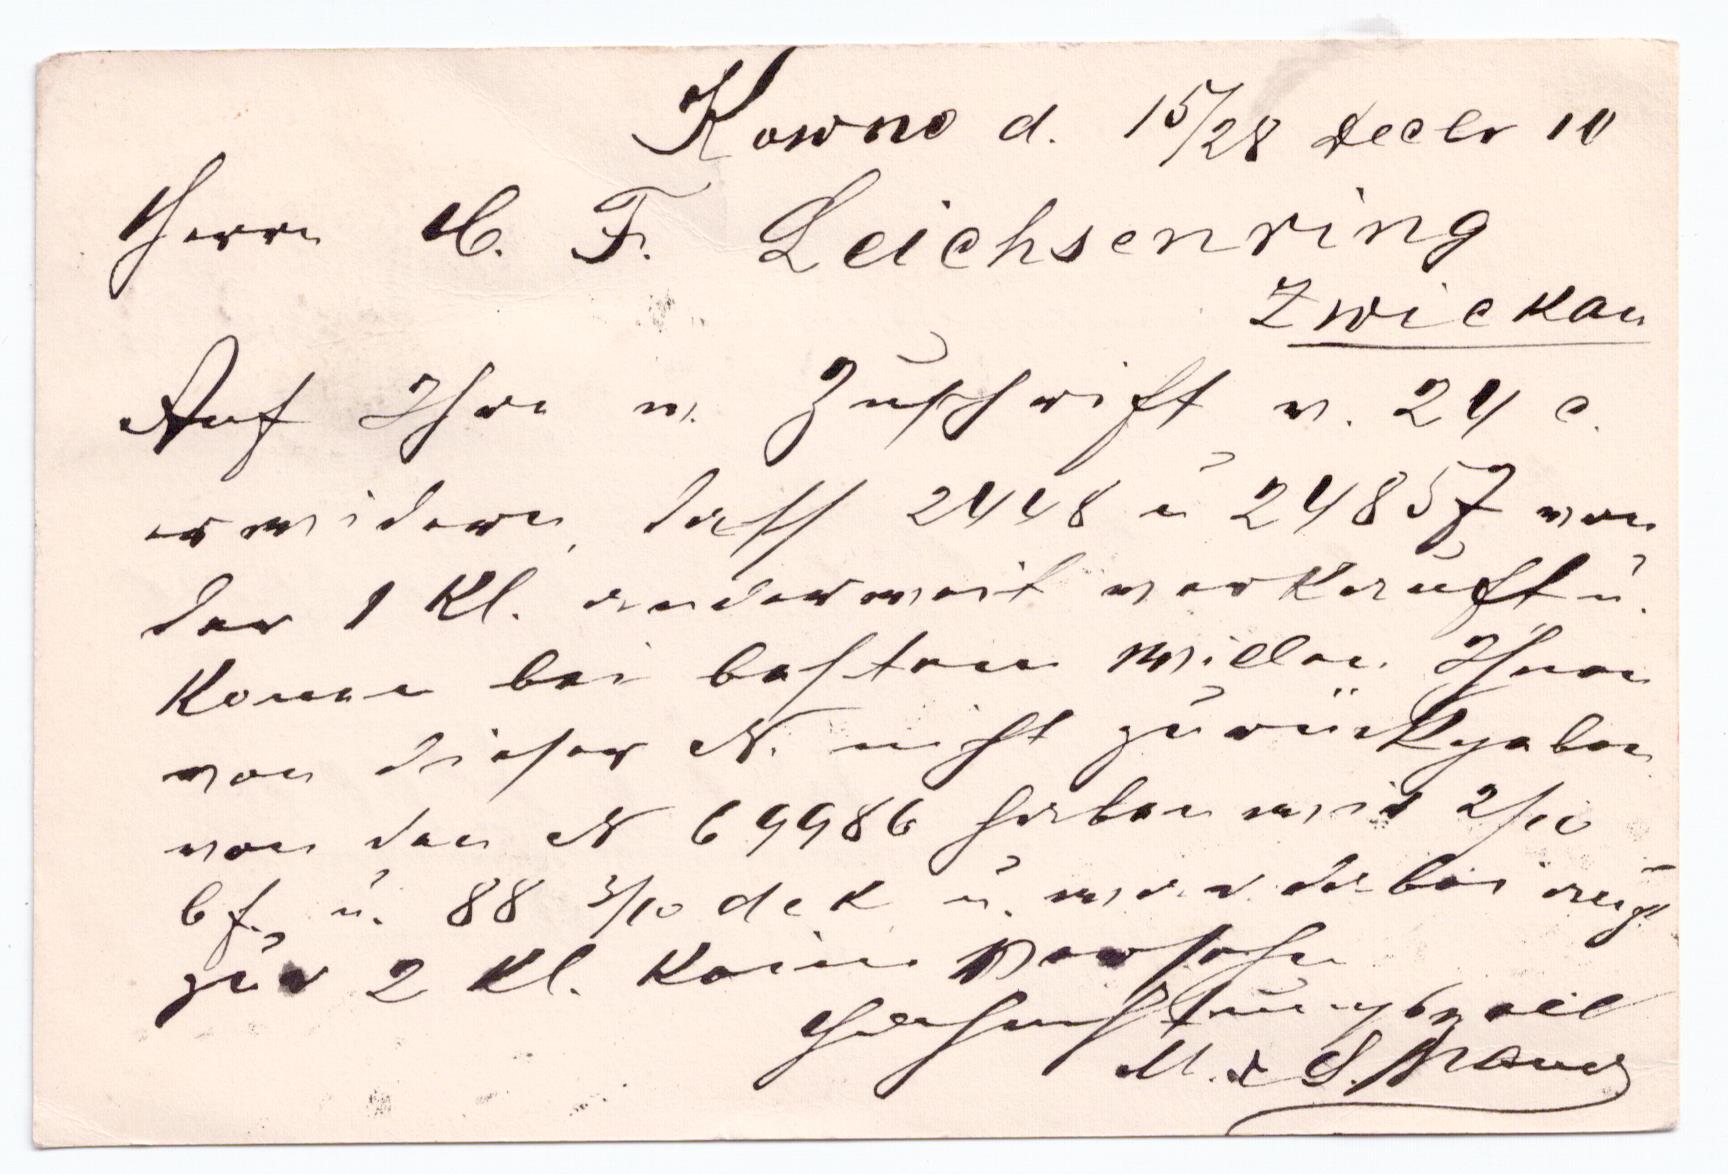 Kowno d. 15/28 Decbr 10
Herrn C. F. Leichsenring
Zwickau
Auf Ihre w. Zuschrift v. 24 c.
erwidern, dass 2448 u 24857 von
der 1 Kl. anderweit verkauft u.
konnen bei bestem willen Ihnen
von dieser N. nicht zurückgeben
von den N 69986 haben wir 2/10
bf. u. 88 3/10 dek u. dabei
zur 2 Kl. kein
Hochachtungsvoll
M. & S.